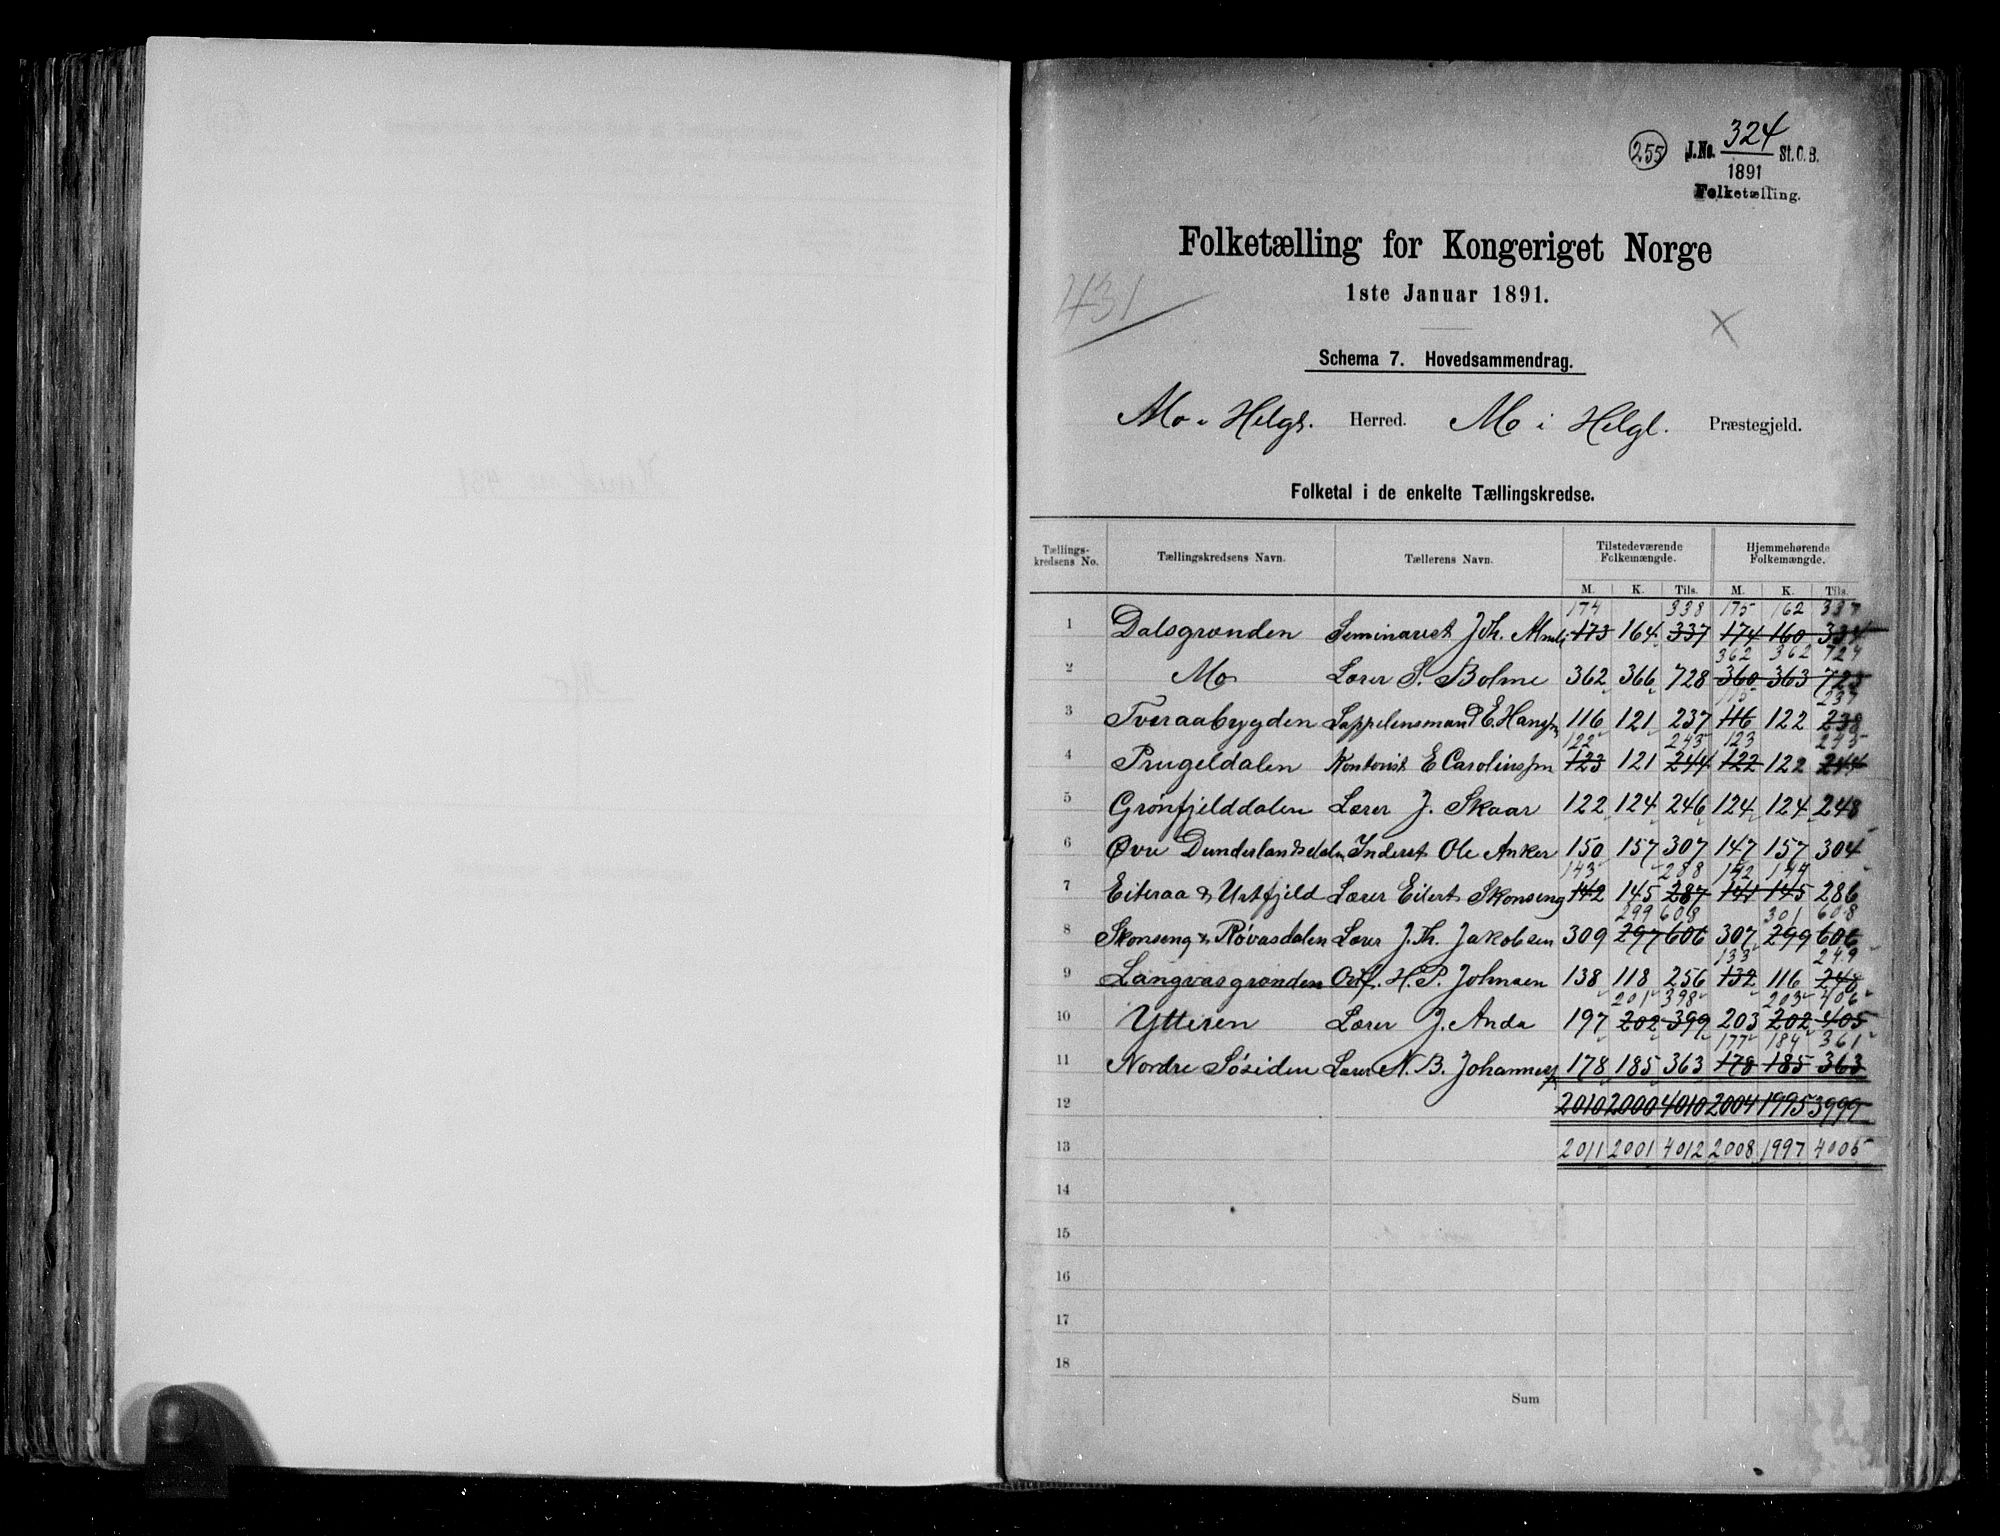 255
J.No. 324 St. C. B.
1891
Folketælling.
Folketælling for Kongeriget Norge
1ste Januar 1891.
431
Schema 7. Hovedsammendrag.
Mo i Helgl. Herred. Mo i Helgl. Præstegjeld.
Folketal i de enkelte Tællingskredse.
Tællings-kredsens No. Tællingskredsens Navn. Tællerens Navn. Tilstedeværende Folkemængde. Hjemmehørende Folkemængde.
M. K. Tils. M. K. Tils.
174 338 175 162 337
1 Dalsgrænden Seminarist Joh. 173 164 337 174 160 334
362 362 724
2 Mo Lærer S. Bolme 362 366 728 360 363 723
115 237
3 Tveraabygden E. 116 121 237 116 122 238
122 243 123 245
4 Prugeldalen Kontorist E Carolinssen 123 121 244 122 122 244
5 Grønfjelddalen Lærer J. Skaar 122 124 246 124 124 248
6 Øvre Dunderlandsdalen Inderst Ole Anker 150 157 307 147 157 304
143 288 142 144
7 Eiteraa & Urtfjeld Lærer Eilert Skonseng 142 145 287 141 145 286
299 608 301 608
8 Skonseng & Røvasdalen Lærer J. Th. Jakobsen 309 297 606 307 299 606
133 249
9 Langvasgrænden H. P. Johnsen 138 118 256 132 116 248
201 398 203 406
10 Ytteren Lærer J. Anda 197 202 399 203 202 405
177 184 361
11 Nordre Søsiden Lærer N. B. Johannes 178 185 363 178 185 363
12 2010 2000 4010 2004 1995 3999
13 2011 2001 4012 2008 1997 4005
14
15
16
17
18
Sum